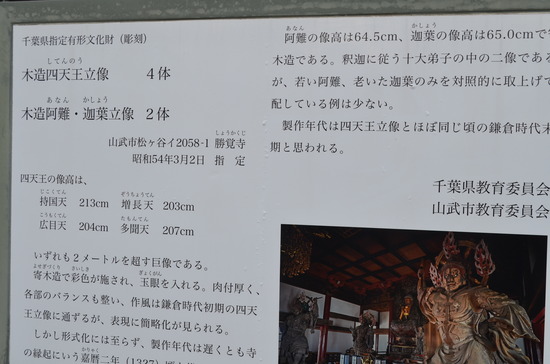 千葉県指定有形文化財（彫刻）
してんのう
木造四天王立像　４体
あなん　かしょう
木造阿難・迦葉立像　２体
山武市松ヶ谷イ2058-1 勝覚寺
しょうかくじ
昭和54年3月2日　指　定
四天王の像高は、
じこくてん　ぞうちょうてん
持国天　213cm　増長天　203cm
こうもくてん　たもんてん
広目天　204cm　多聞天　207cm
いずれも２メートルを超す巨像である。
よせぎづくり　さいしき　ぎょくがん
寄木造で彩色が施され、玉眼を入れる。肉付厚く、
各部のバランスも整い、作風は鎌倉時代初期の四天
王立像に通ずるが、表現に簡略化が見られる。
しかし形式化には至らず、製作年代は遅くとも寺
の縁起にいう嘉暦二年（1327）
あなん　かしょう
阿難の像高は64.5cm、迦葉の像高は65.0cmで
木造である。釈迦に従う十大弟子の中の二像である
が、若い阿難、老いた迦葉のみを対照的に取上げて
配している例は少ない。
製作年代は四天王立像とほぼ同じ頃の鎌倉時代末
期と思われる。
千葉県教育委員会
山武市教育委員会